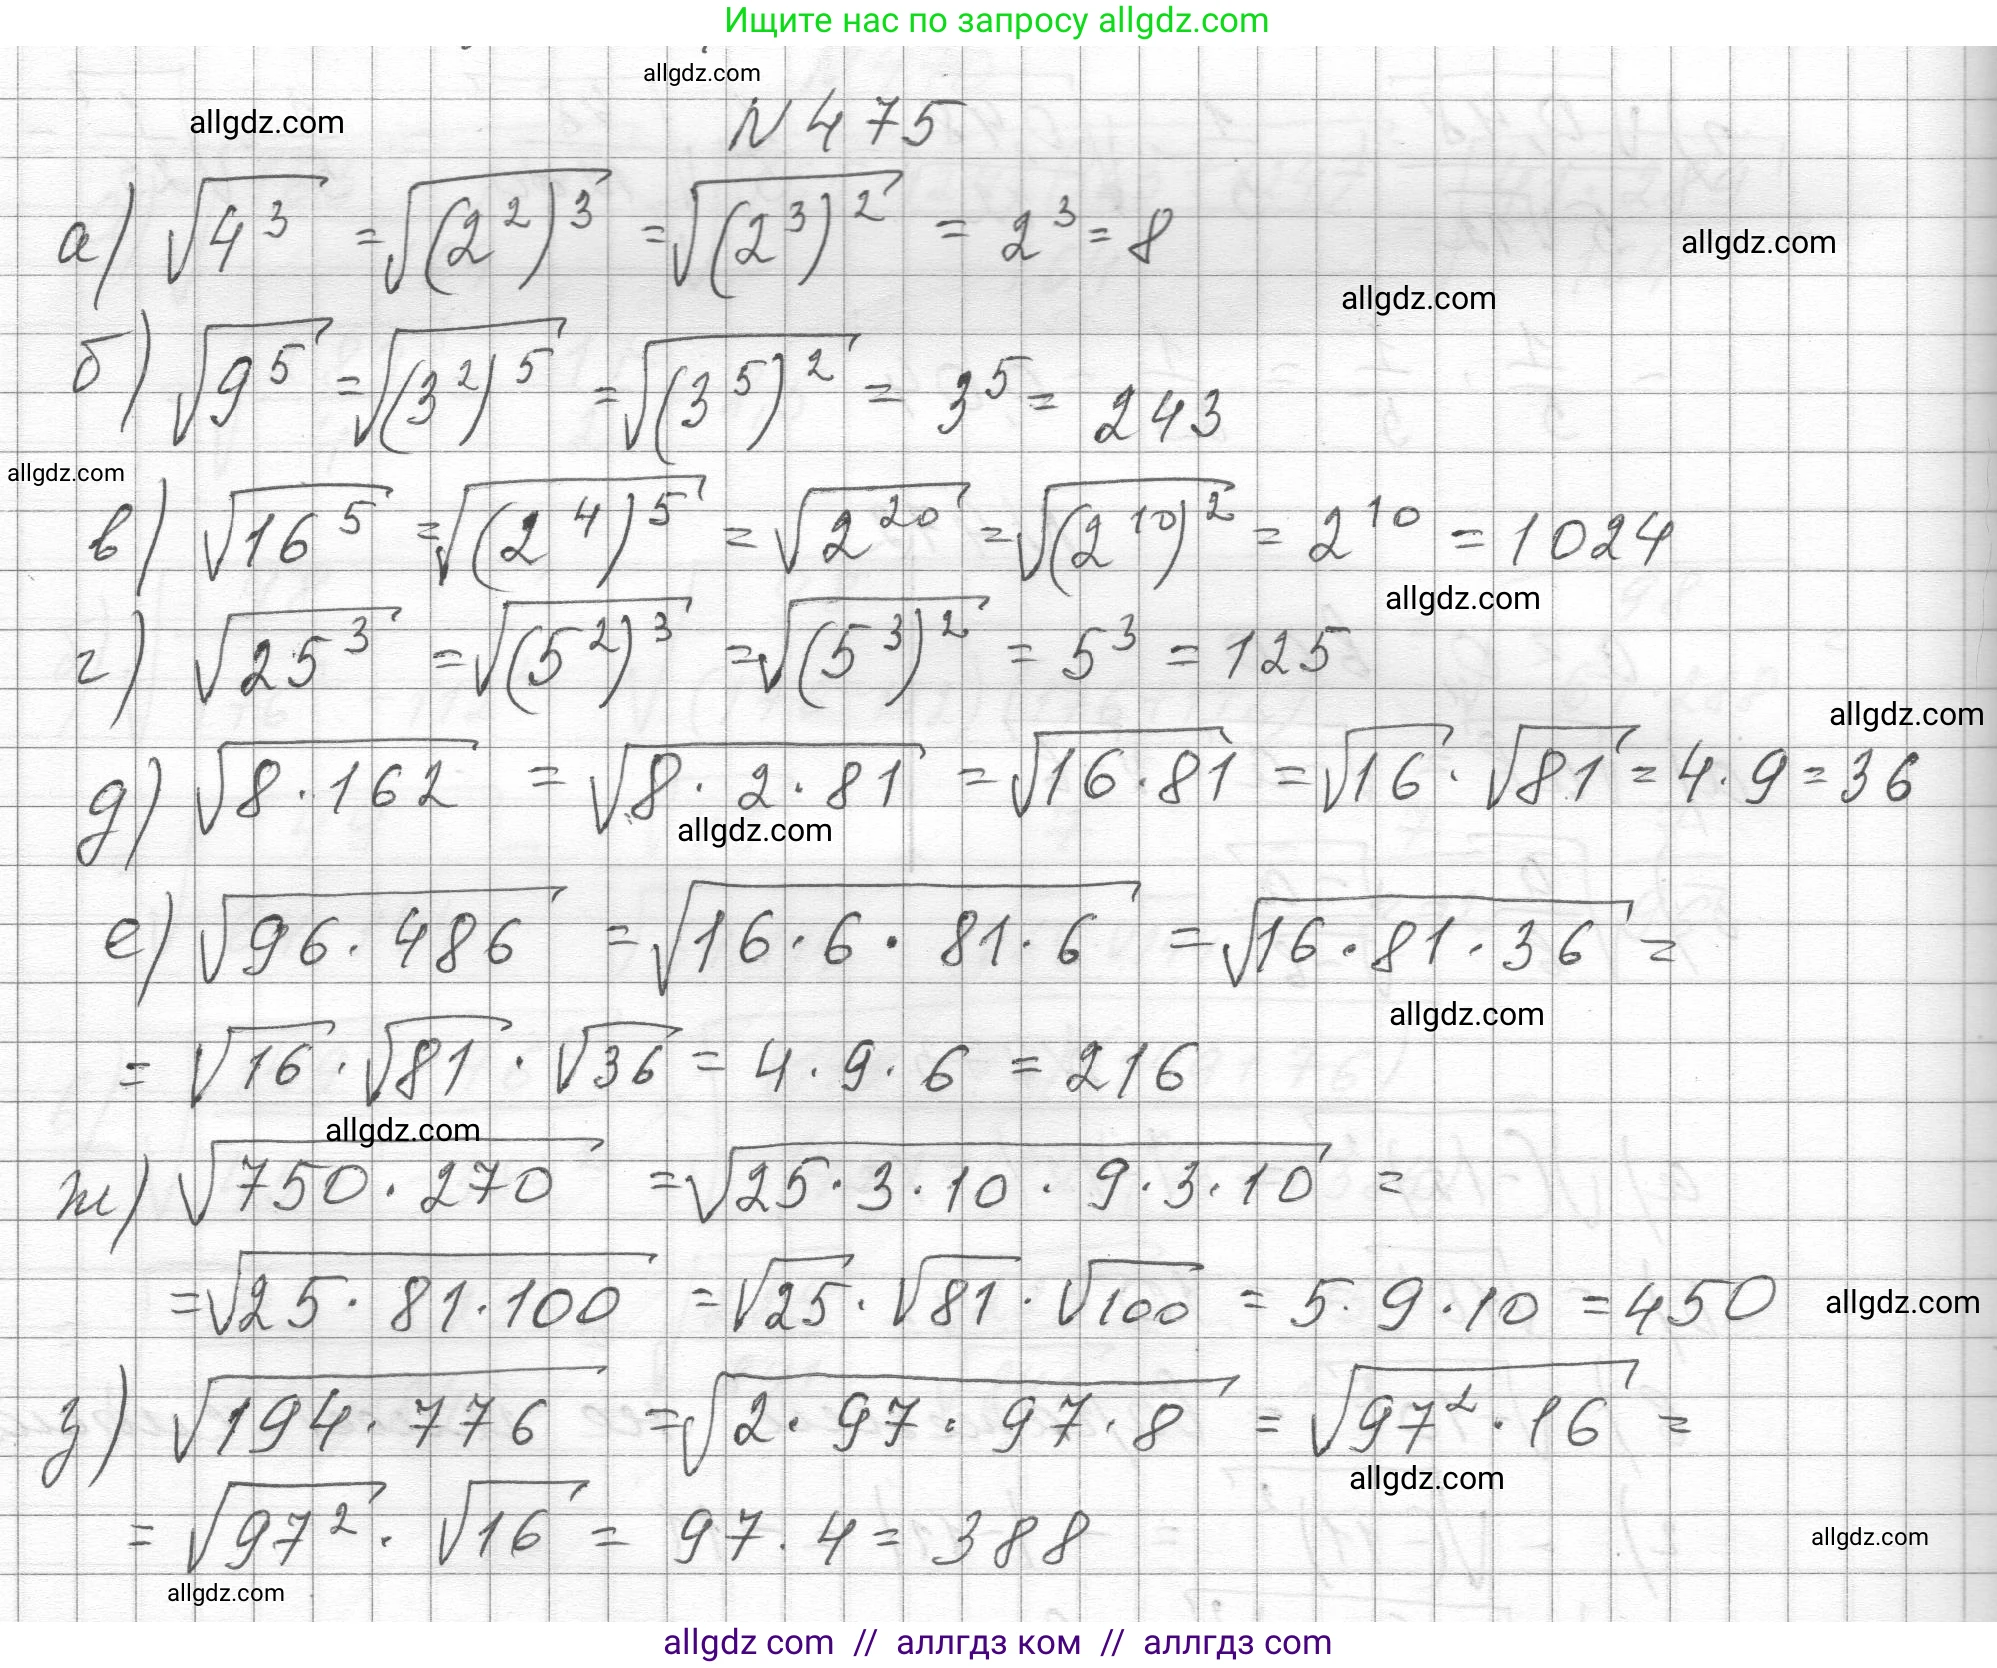 Ищите нас по запросу allgdz.com
allgdz.com
allgdz.com
N 475
а) √(4³) = √((2²)³) = √((2³)²) = 2³ = 8
allgdz.com
allgdz.com
б) √(9⁵) = √((3²)⁵) = √((3⁵)²) = 3⁵ = 243
allgdz.com
в) √(16⁵) = √((2⁴)⁵) = √(2²⁰) = √((2¹⁰)²) = 2¹⁰ = 1024
allgdz.com
г) √(25³) = √((5²)³) = √((5³)²) = 5³ = 125
allgdz.com
д) √(8·162) = √(8·2·81) = √(16·81) = √16·√81 = 4·9 = 36
allgdz.com
е) √(96·486) = √(16·6·81·6) = √(16·81·36) =
allgdz.com
= √16·√81·√36 = 4·9·6 = 216
allgdz.com
ж) √(750·270) = √(25·3·10·9·3·10) =
= √(25·81·100) = √25·√81·√100 = 5·9·10 = 450
allgdz.com
з) √(194·776) = √(2·97·97·8) = √(97²·16) =
allgdz.com
= √(97²)·√16 = 97·4 = 388
allgdz.com
allgdz.com
allgdz com // аллгдз ком // аллгдз com